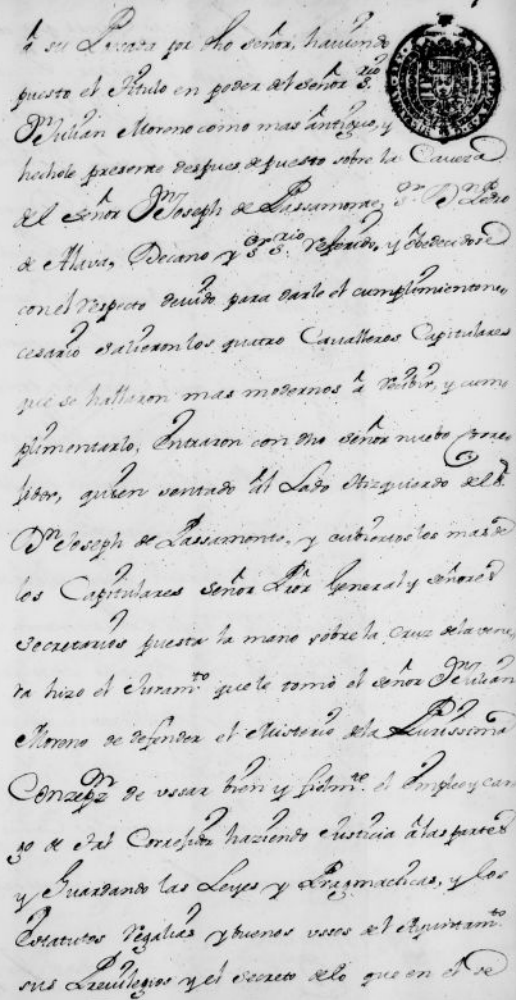 â su Posada por dho señor, haviendo
puesto el Titulo en poder del señor srio
Dn Julian Moreno como mas Antiguo, y
hechole presente despues de puesto sobre la Caveza
del señor Dn Joseph de Passamonte, sr Dn Pedro
de Alava, Decano y sr srio referido, y obedecidose
con el respecto devido para darle el cumplimiento ne-
cesario salieron los quatro Cavalleros Capitulares
que se hallaron mas modernos â recivir, y cum-
plimentarlo, Entraron con dho señor nuebo Corre-
jidor, quien sentado âl Lado Yzquierdo del sr
Dn Joseph de Passamonte, y cubiertos los mas de
los Capitulares señor Pror General y señores
secretarios puesta la mano sobre la Cruz de la vene-
ra hizo el Juramto que le tomó el señor Dn Julian
Moreno de defender el Misterio de la Purissima
Conzepzn de ussar bien y fielmte el Empleo y car-
go de tal Correjidor haziendo Justicia â las partes
y Guardando las Leyes y Pragmacticas, y los
Estatutos regalias y buenos ussos del Ayuntamto
sus Previlegios y el secreto de lo que en el se